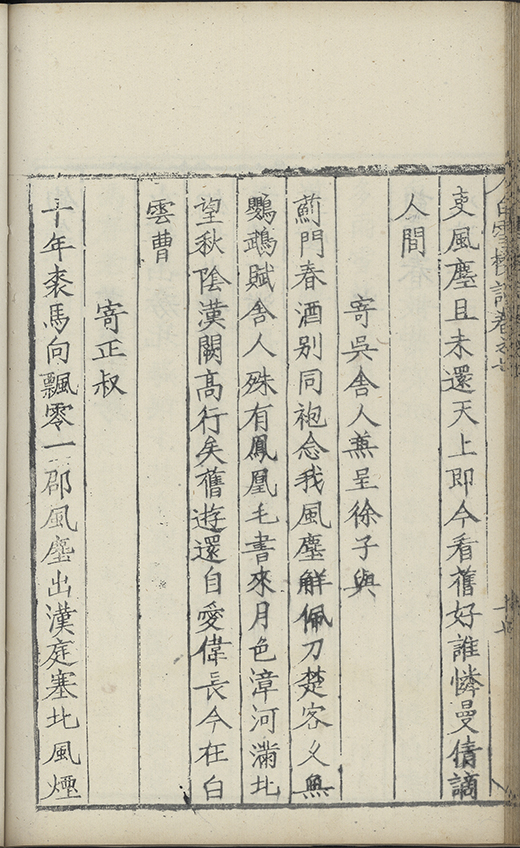 白雪樓詩卷之
吏風塵且未還天上即今看舊好誰憐曼倩謫
人間
寄吳舍人兼呈徐子與
薊門春酒别同袍念我風塵解佩刀楚客久無
鸚鵡賦舍人殊有鳳凰毛書來月色漳河滿北
望秋陰漢闕高行矣舊遊還自愛偉長今在白
雲曹
寄正叔
十年裘馬向飄零一郡風塵出漢庭塞北風煙